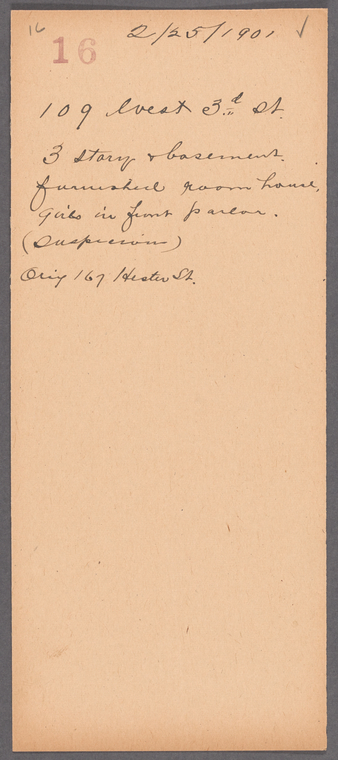 16
16 2/25/1901 ✓
109 West 3rd St.
3 story & basement.
furnished room house,
girls in front parlor.
(Suspicious)
Orig 167 Hester St.